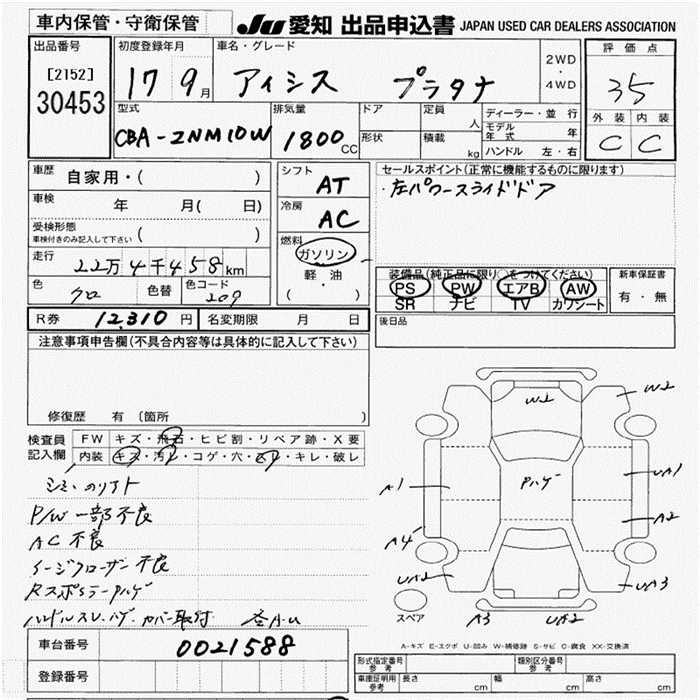 車内保管・守衛保管
JU 愛知 出品申込書 JAPAN USED CAR DEALERS ASSOCIATION
出品番号
[2152]
30453
初度登録年月
17 9月
車名・グレード
アイシス プラタナ
2WD
・
4WD
評価点
35
外装 内装
C C
型式
CBA-ZNM10W
排気量
1800 CC
ドア
形状
定員
人
積載
kg
ディーラー・並行
モデル年式 年
ハンドル 左・右
車歴
自家用・( )
車検
年 月( 日)
受検形態
車検付きのみ記入して下さい ( )
走行
22万4千458km
色
クロ
色替
色コード
209
シフト
AT
冷房
AC
燃料
ガソリン
軽・油
( ・ )
セールスポイント(正常に機能するものに限ります)
・左パワースライドドア
装備品(純正品に限り○をつけてください)
PS PW エアB AW
SR ナビ TV カワシート
新車保証書
有・無
後日品
R券 12,310円
名変期限 月 日
注意事項申告欄(不具合内容等は具体的に記入して下さい)
修復歴 有(箇所 )
検査員記入欄
FW キズ・飛石・ヒビ割・リペア跡・X要
内装 キズ・汚レ・コゲ・穴・スレ・キレ・破レ
シミ、のリフト
P/W一部不良
AC不良
イージクローザー不良
Rスポイラー Pハゲ
ハンドルスレ、ハゲ、カバー取付 各A・U
W2
W2
Pハゲ
A1
UA1
A2
A4
UA2
UA3
A3
UA2
スペア
A-キズ E-エクボ U-凹み W-補修跡 S-サビ C-腐食 XX-交換済
車台番号
0021588
登録番号
形式指定番号
参考
類別区分番号
参考
車庫証明用
参考
長さ cm
幅 cm
高さ cm